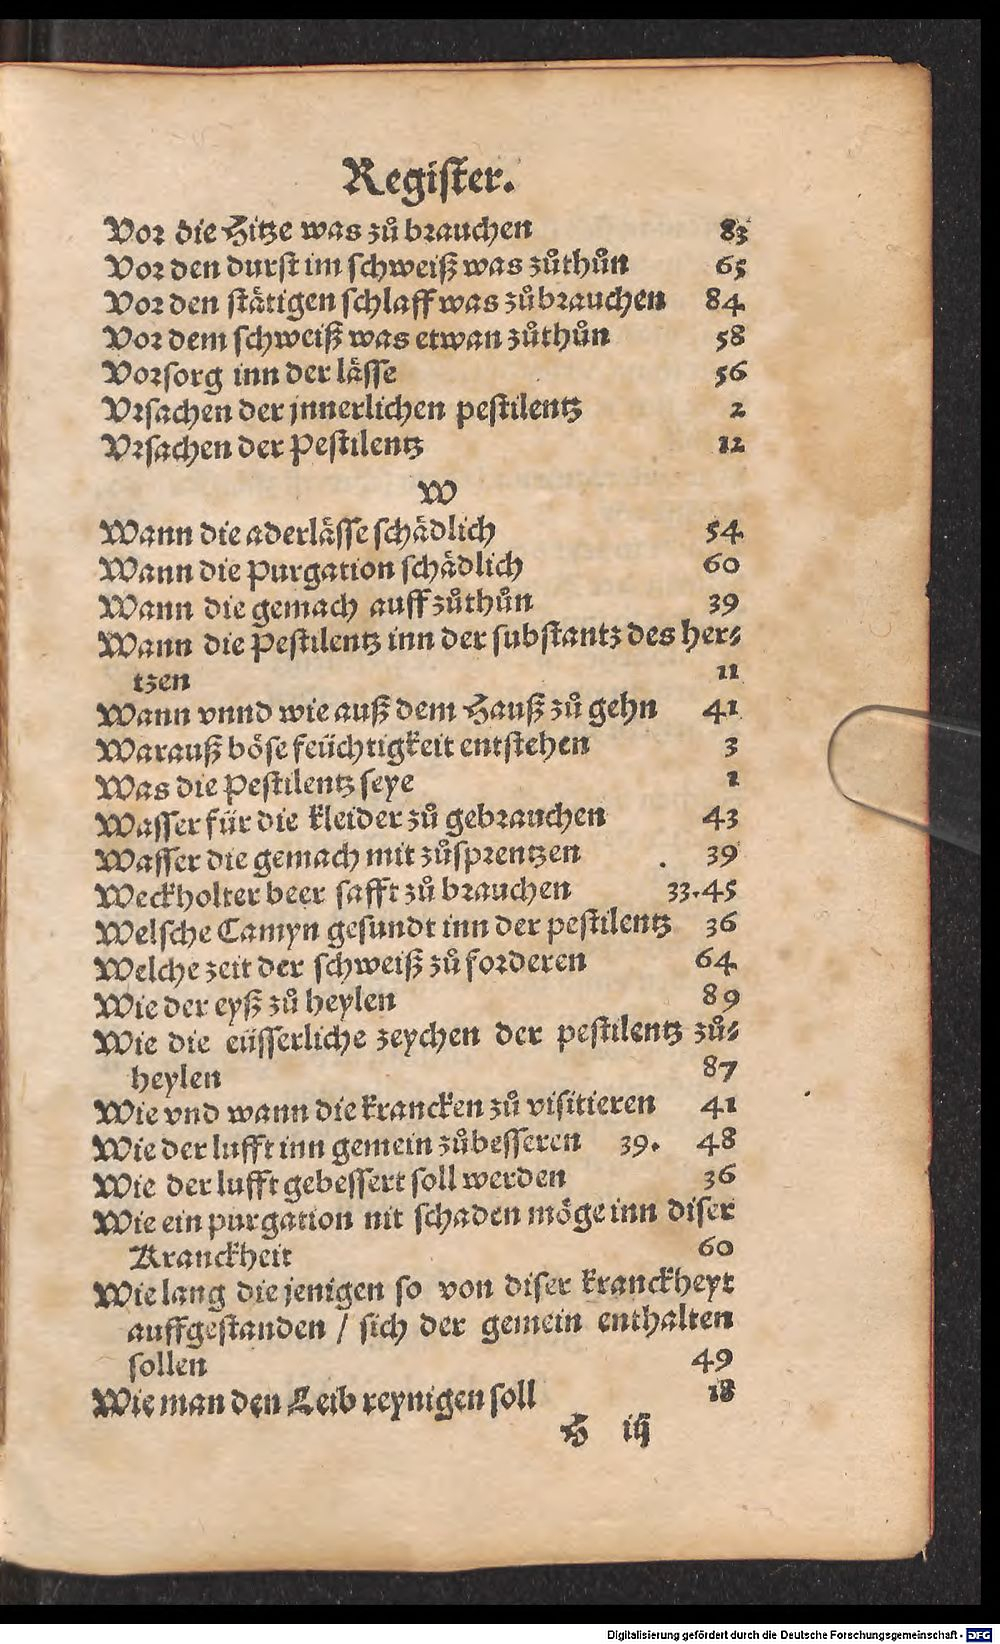 Register.
Vor die Hitze was zů brauchen 83
Vor den durst im schweiß was zůthůn 65
Vor den stätigen schlaff was zůbrauchen 84
Vor dem schweiß was etwan zůthůn 58
Vorsorg inn der lässe 56
Vrsachen der jnnerlichen pestilentz 2
Vrsachen der Pestilentz 12
W
Wann die aderlässe schädlich 54
Wann die Purgation schädlich 60
Wann die gemach auff zůthůn 39
Wann die Pestilentz inn der substantz des her⸗
tzen 11
Wann vnnd wie auß dem Hauß zů gehn 41
Warauß böse feüchtigkeit entstehen 3
Was die Pestilentz seye 1
Wasser für die kleider zů gebrauchen 43
Wasser die gemach mit zůsprentzen 39
Weckholter beer safft zů brauchen 33.45
Welsche Camyn gesundt inn der pestilentz 36
Welche zeit der schweiß zů forderen 64
Wie der eyß zů heylen 89
Wie die eüsserliche zeychen der pestilentz zů⸗
heylen 87
Wie vnd wann die krancken zů visitieren 41
Wie der lufft inn gemein zůbesseren 39. 48
Wie der lufft gebessert soll werden 36
Wie ein purgation nit schaden möge inn diser
Kranckheit 60
Wie lang die jenigen so von diser kranckheyt
auffgestanden / sich der gemein enthalten
sollen 49
Wie man den Leib reynigen soll 18
H iij
Digitalisierung gefördert durch die Deutsche Forschungsgemeinschaft - DFG